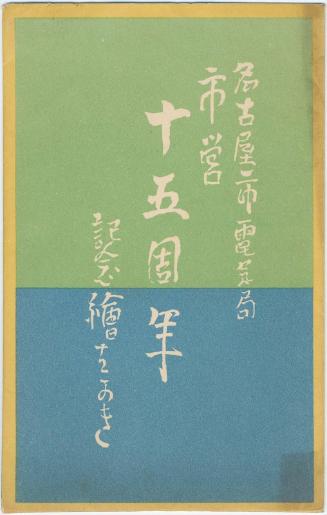 名古屋市電気局
市営
十五周年
記念繪はかき